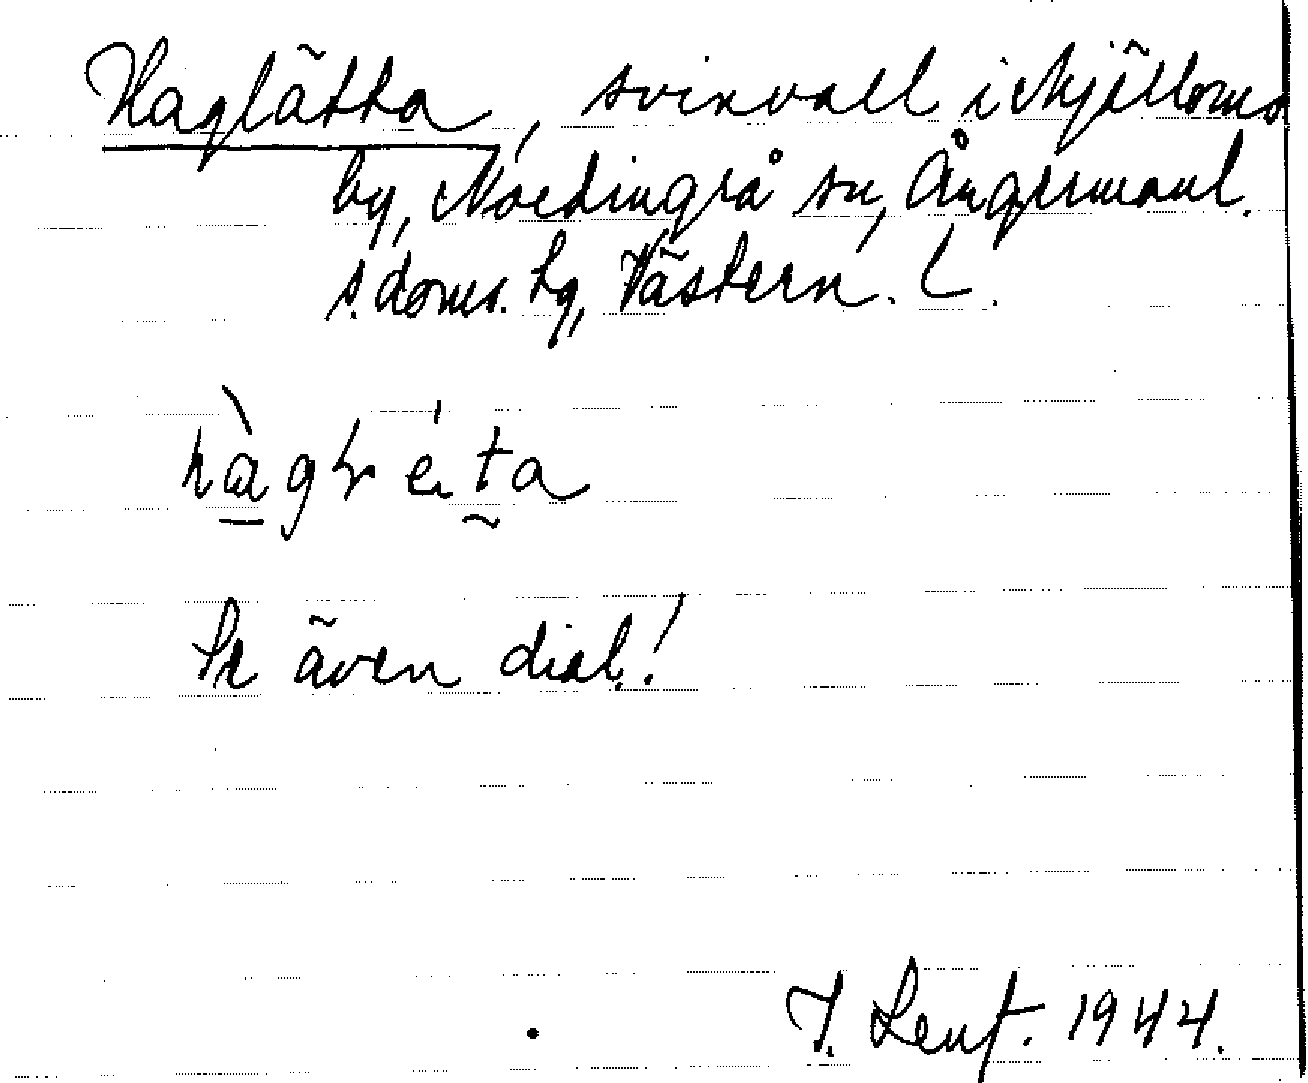 Haglätta, svinvall i Mjälloms
by, Nordingrå sn, Ångermanl.
s. doms. hg, Västern. L.
Se även dial.!
J. Lenf. 1944.